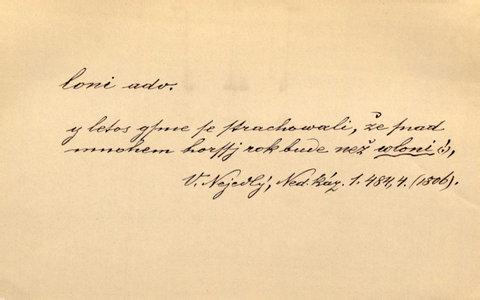 loni adv.
y letos gsme se strachowali, že snad
mnohem horssj rok bude než wloni
V. Nejedlý, Ned. káz. 1. 484, 4. (1806).